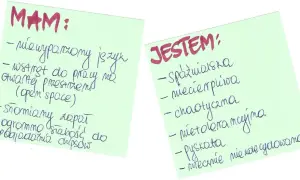 MAM:
- niewyparzony język
- wstręt do pracy na
otwartej przestrzeni
(open space)
- słomiany zapał
ogromną słabość do
chipsów
JESTEM:
- spóźnialska
- niecierpliwa
- chaotyczna
- nietolerancyjna
- pyskata
- niezdecydowana